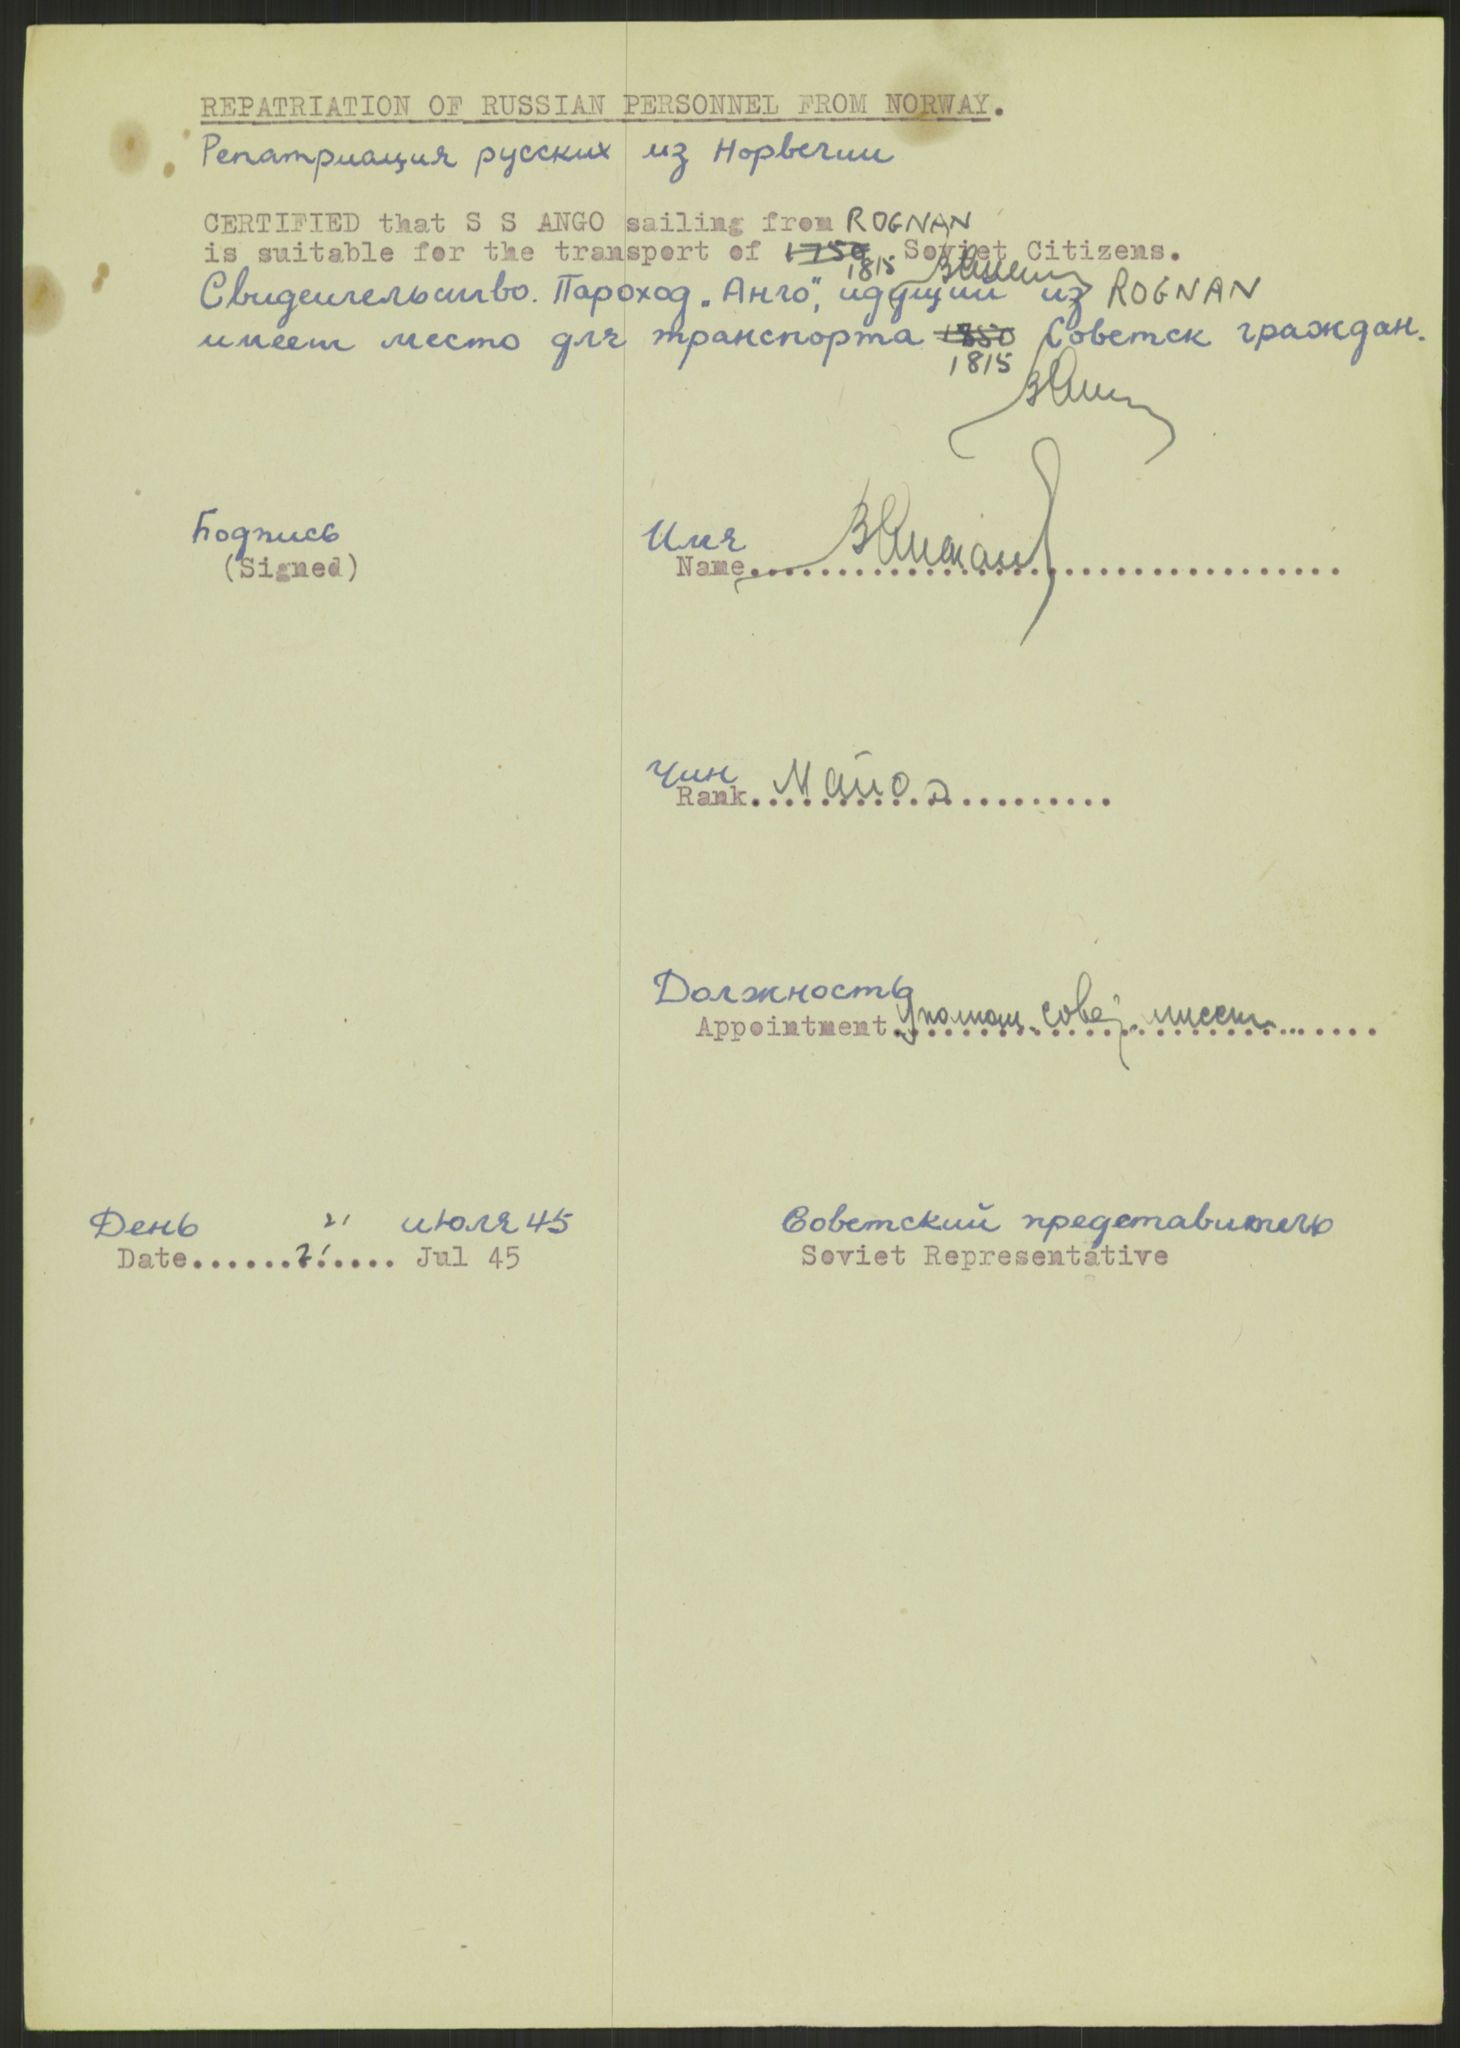 REPATRIATION OF RUSSIAN PERSONNEL FROM NORWAY.
Репатриация русских из Норвегии
CERTIFIED that S S ANGO sailing from ROGNAN
is suitable for the transport of 1750 1815 Soviet Citizens.
Свидетельство. Пароход „Анго”, идущий из ROGNAN
имеет место для транспорта 1850 Советск граждан.
1815
Подпись
(Signed)
Имя
Name
Чин
Rank Майор
Должность
Appointment сов. миссии
День 21 июля 45
Date 21 Jul 45
Советский представитель
Soviet Representative